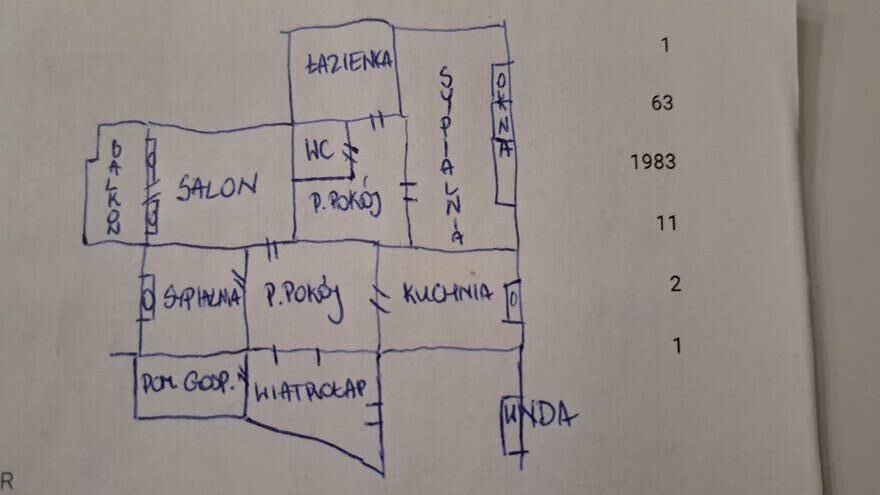 ŁAZIENKA
SYPIALNIA
OKNA
1
63
1983
11
2
1
BALKON
O
O
SALON
WC
P. POKÓJ
O
SYPIALNA
P. POKÓJ
KUCHNIA
O
POM. GODP.
WIATROŁAP
WINDA
R